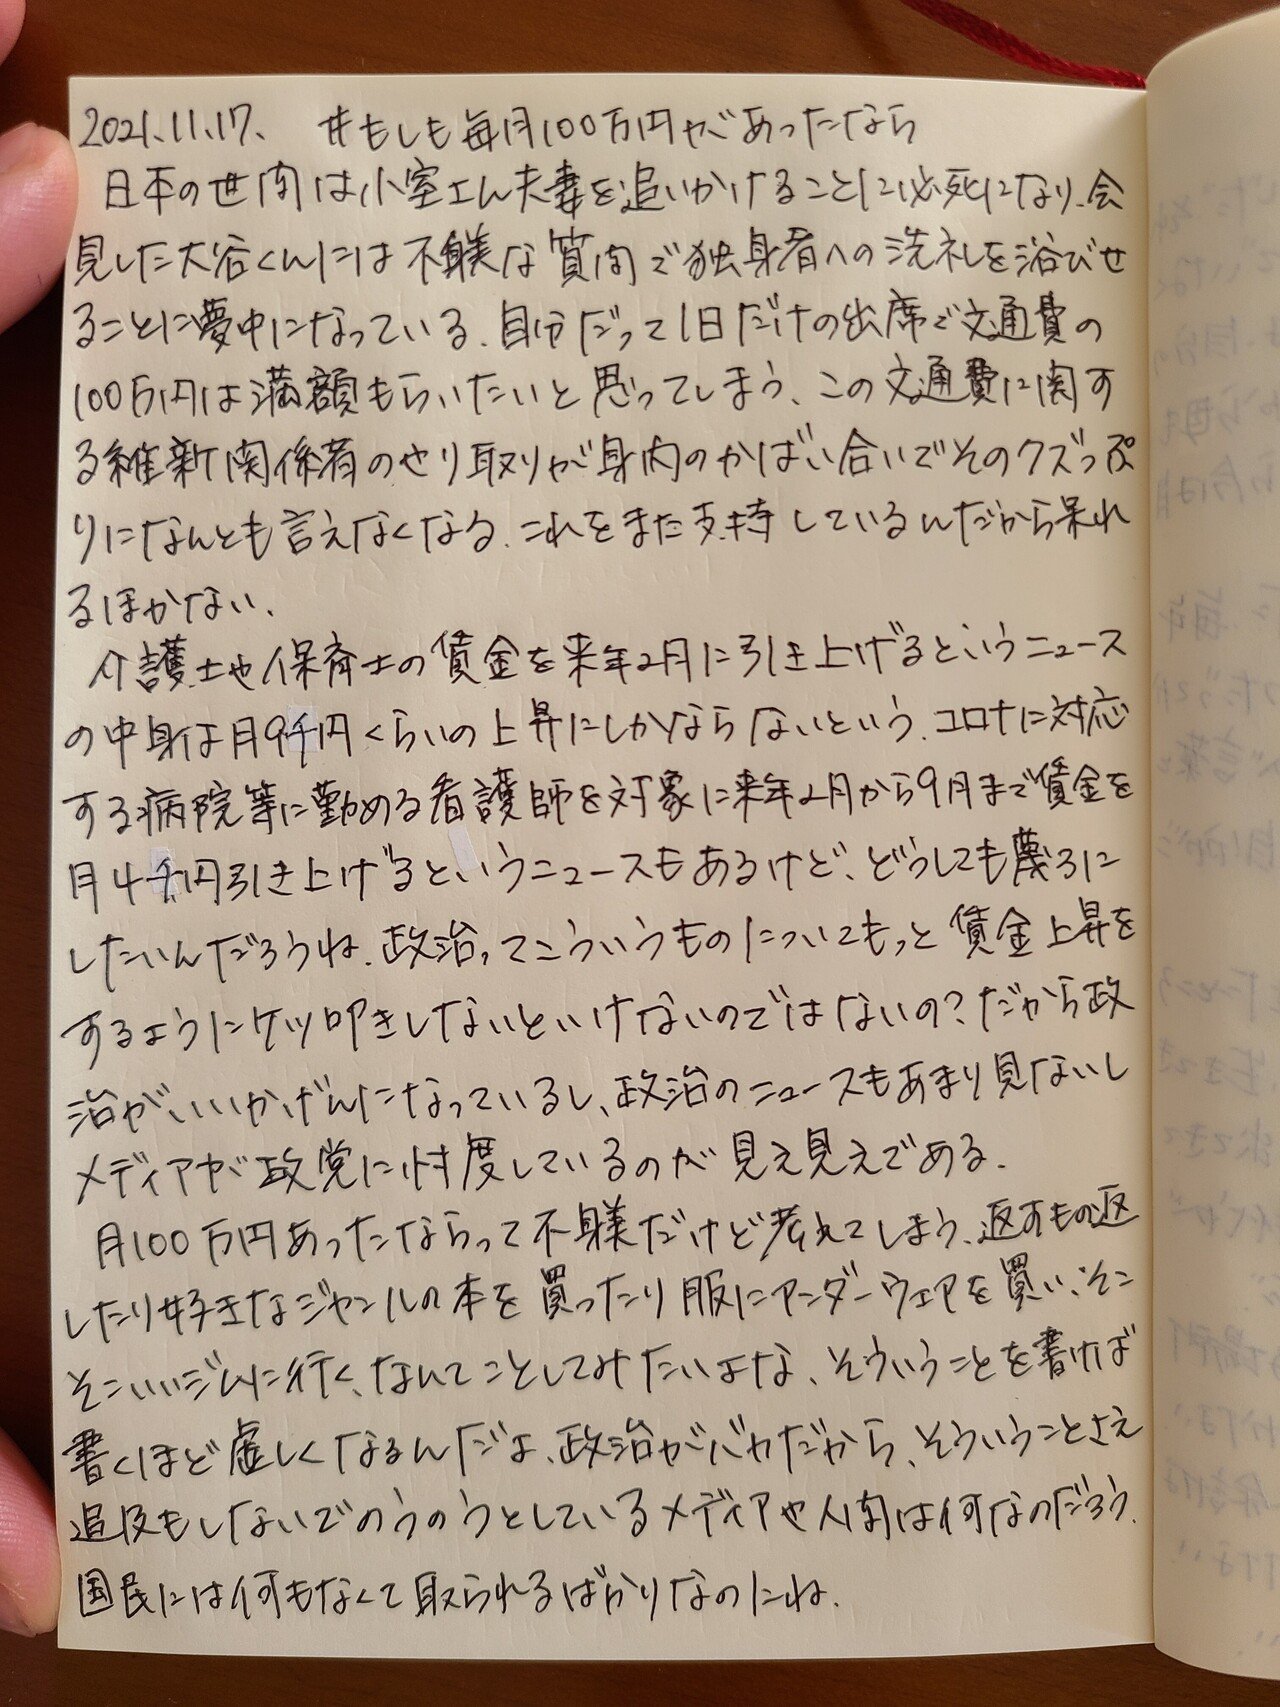 2021.11.17. #もしも毎月100万円があったなら
日本の世間は小室さん夫妻を追いかけることに必死になり、会
見した大谷くんには不躾な質問で独身者への洗礼を浴びせ
ることに夢中になっている。自分だって1日だけの出席で交通費の
100万円は満額もらいたいと思ってしまう、この交通費に関す
る維新関係者のやり取りが身内のかばい合いでそのクズっぷ
りになんとも言えなくなる。これをまだ支持しているんだから呆れ
るほかない。
介護士や保育士の賃金を来年2月に引き上げるというニュース
の中身は月9千円くらいの上昇にしかならないという。コロナに対応
する病院等に勤める看護師を対象に来年2月から9月まで賃金を
月4千円引き上げるというニュースもあるけど、どうしても蔑ろに
したいんだろうね。政治ってこういうものについてもっと賃金上昇を
するようにケツ叩きしないといけないのではないの?だから政
治がいいかげんになっているし、政治のニュースもあまり見ないし
メディアが政党に忖度しているのが見え見えである。
月100万円あったならって不躾だけど考れてしまう、返すもの返
したり好きなジャンルの本を買ったり服にアンダーウェアを買い、そこ
そこいいジムに行く、なんてことしてみたいよな、そういうことを書けば
書くほど虚しくなるんだよ、政治がバカだから、そういうことさえ
追及もしないでのうのうとしているメディアや人間は何なのだろう。
国民には何もなくて取られるばかりなのにね。